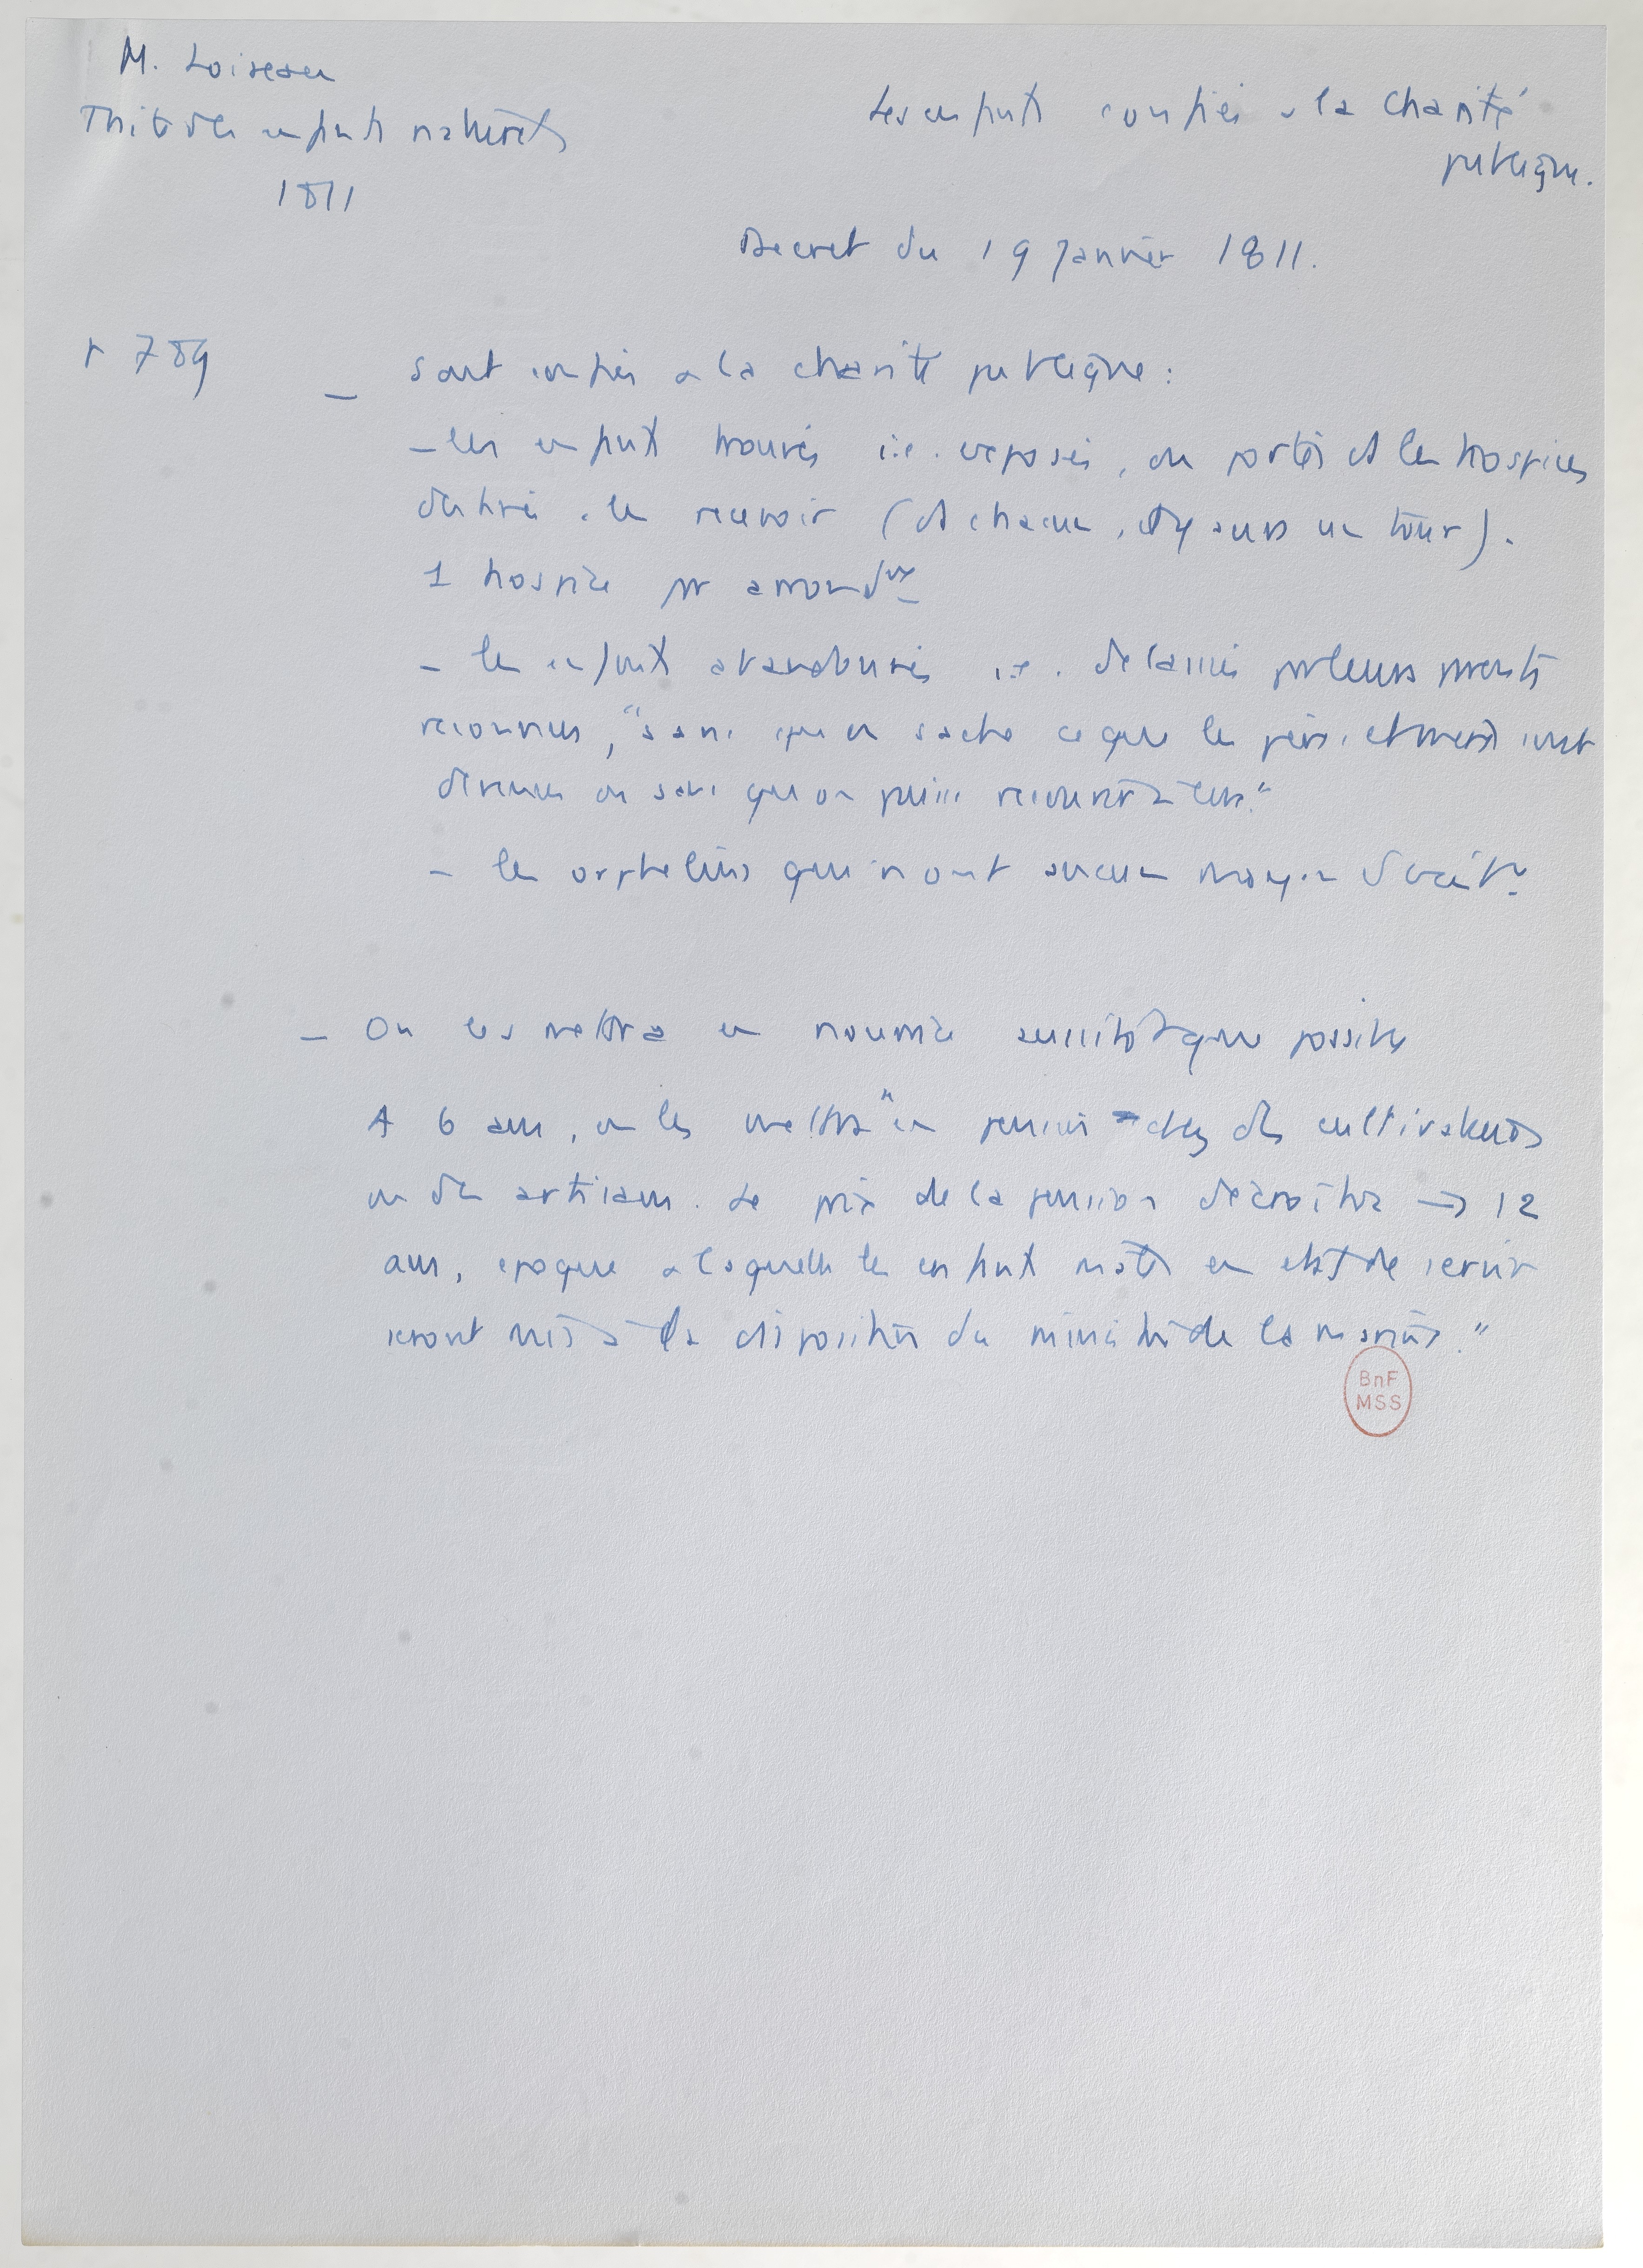 M. Loiseau
Traité des enfants naturels
1811
Les enfants confiés à la charité
publique.
Decret du 19 Janvier 1811.
p 789
– sont confiés a la charité publique :
– les enfants trouvés i.e. exposés, ou portés ds les hospices
destinés a les recevoir (ds chacun, il y aura un tour).
1 hospice par arrondt
– les enfants abandonnés i.e. delaissés par leurs parents
reconnus, "sans qu'on sache ce que les pères et mères sont
devenus ou sans que on puisse recourir à eux."
– les orphelins qui n'ont aucun moyen d'exist.
– On les mettra en nourrice aussitôt que possible
A 6 ans, on les mettra "en pension chez des cultivateurs
ou des artisans. Le prix de la pension décroîtra → 12
ans, epoque a laquelle les enfants mâles en état de servir
seront mis à la disposition du ministre de la marine."
BnF
MSS